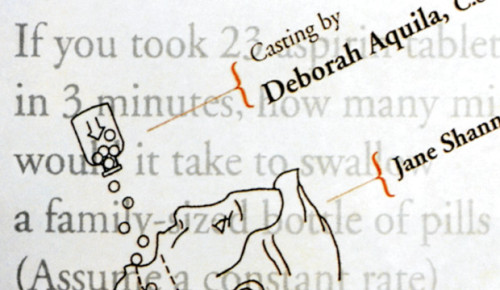 If you took 23 aspirin tablet
in 3 minutes, how many mi
would it take to swallow
a family-sized bottle of pills
(Assume a constant rate)
Casting by
Deborah Aquila, C.S
Jane Shann